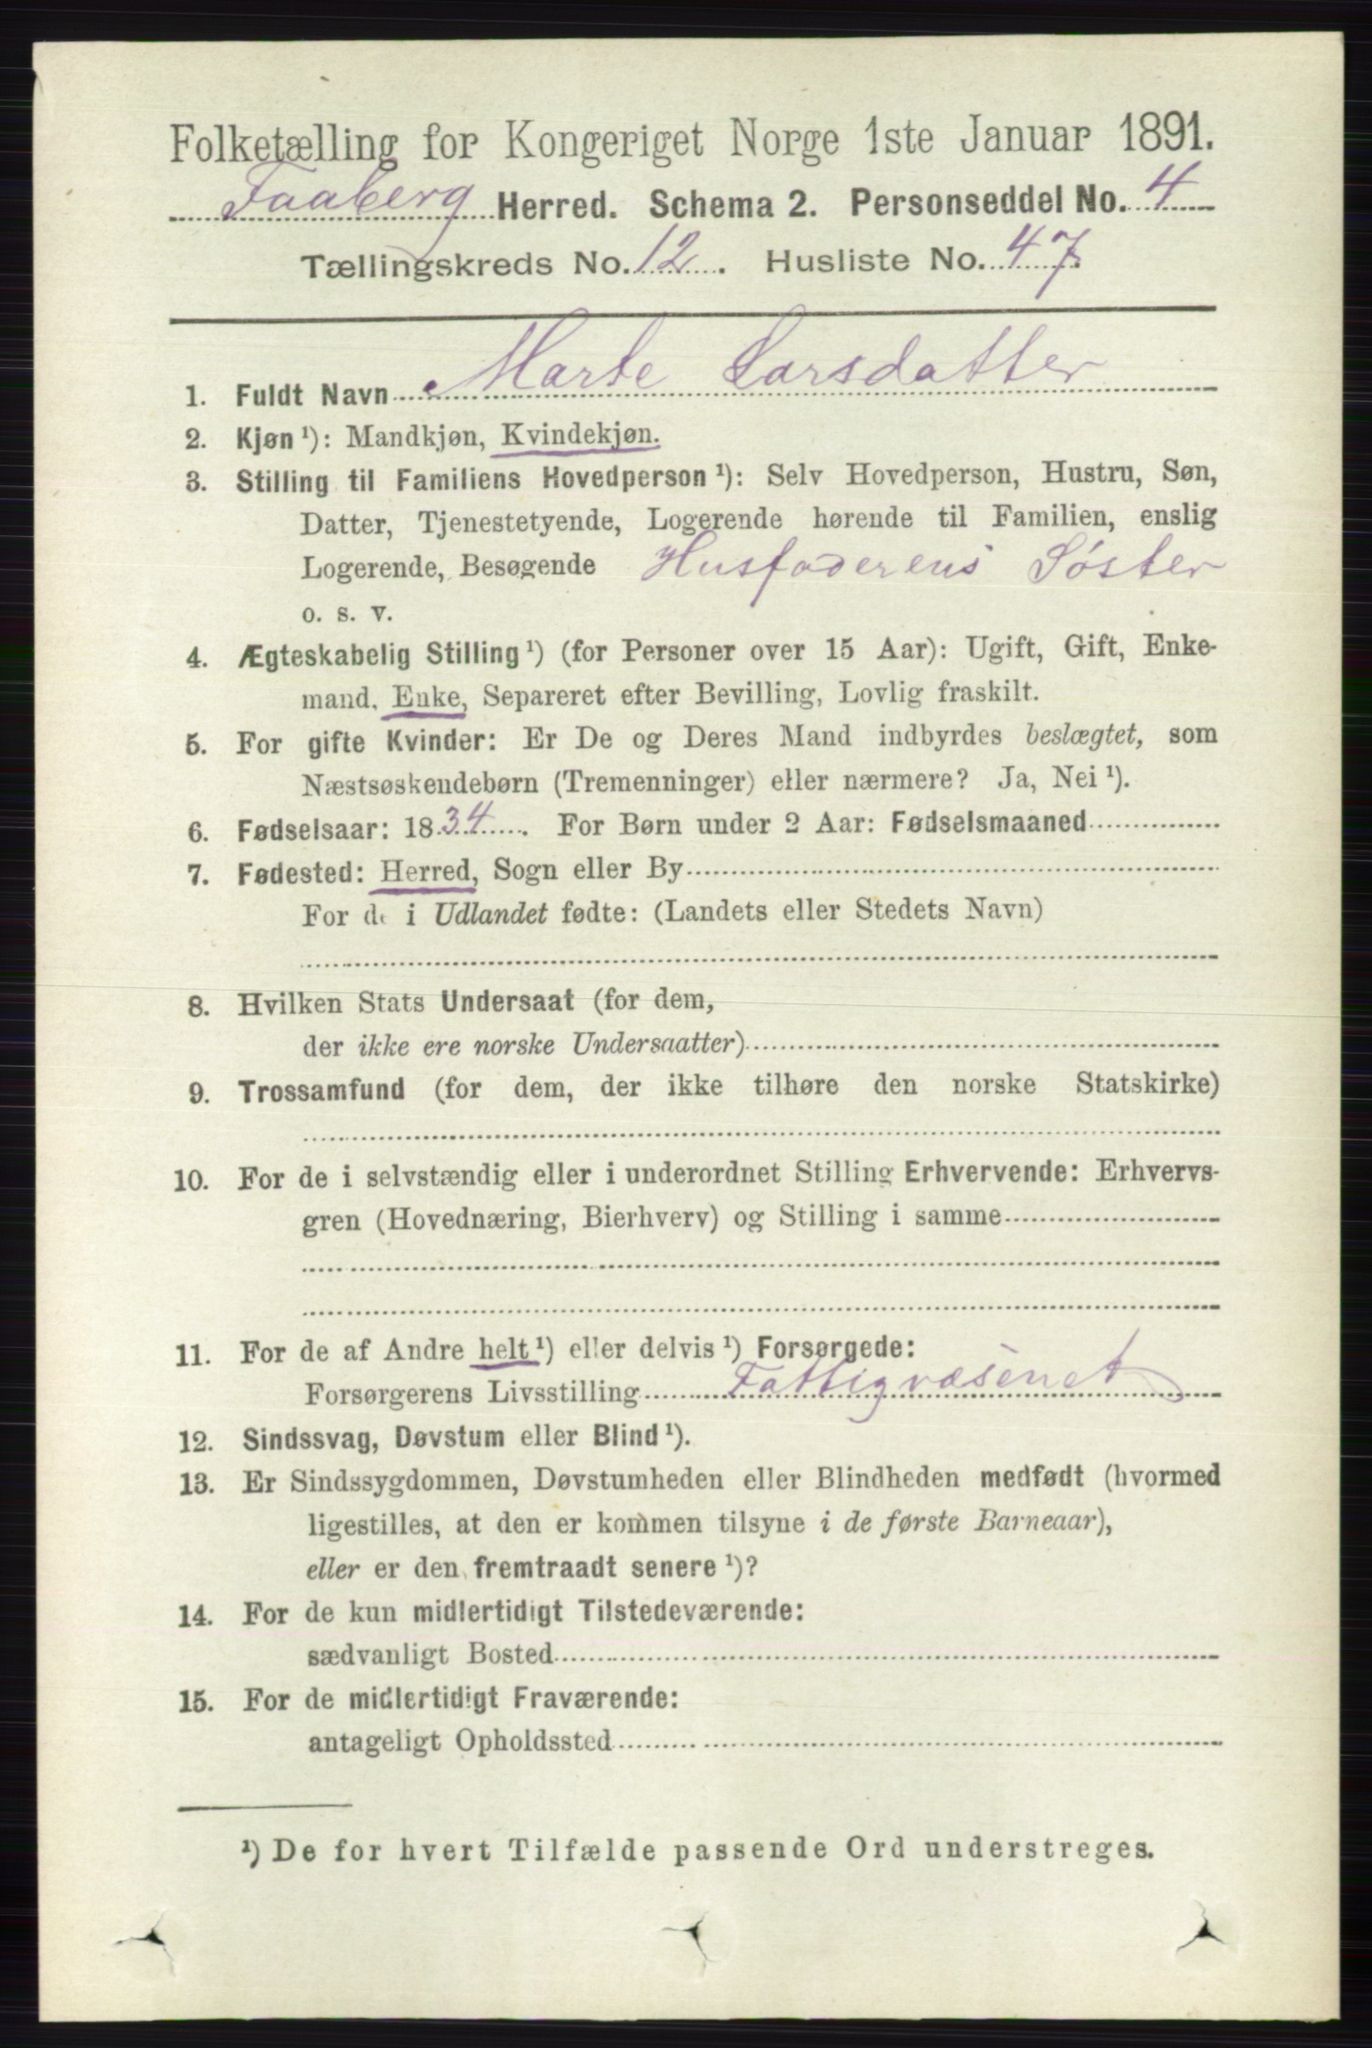 Folketælling for Kongeriget Norge 1ste Januar 1891.
Faaberg Herred. Schema 2. Personseddel No. 4
Tællingskreds No. 12. Husliste No. 47
1. Fuldt Navn Marte Larsdatter
2. Kjøn ¹): Mandkjøn, Kvindekjøn.
3. Stilling til Familiens Hovedperson ¹): Selv Hovedperson, Hustru, Søn,
Datter, Tjenestetyende, Logerende hørende til Familien, enslig
Logerende, Besøgende Husfaderens Søster
o. s. v.
4. Ægteskabelig Stilling ¹) (for Personer over 15 Aar): Ugift, Gift, Enke-
mand, Enke, Separeret efter Bevilling, Lovlig fraskilt.
5. For gifte Kvinder: Er De og Deres Mand indbyrdes beslægtet, som
Næstsøskendebørn (Tremenninger) eller nærmere? Ja, Nei ¹).
6. Fødselsaar: 1834. For Børn under 2 Aar: Fødselsmaaned
7. Fødested: Herred, Sogn eller By
For de i Udlandet fødte: (Landets eller Stedets Navn)
8. Hvilken Stats Undersaat (for dem,
der ikke ere norske Undersaatter)
9. Trossamfund (for dem, der ikke tilhøre den norske Statskirke)
10. For de i selvstændig eller i underordnet Stilling Erhvervende: Erhvervs-
gren (Hovednæring, Bierhverv) og Stilling i samme
11. For de af Andre helt ¹) eller delvis ¹) Forsørgede:
Forsørgerens Livsstilling Fattigvæsenet
12. Sindssvag, Døvstum eller Blind ¹).
13. Er Sindssygdommen, Døvstumheden eller Blindheden medfødt (hvormed
ligestilles, at den er kommen tilsyne i de første Barneaar),
eller er den fremtraadt senere ¹)?
14. For de kun midlertidigt Tilstedeværende:
sædvanligt Bosted
15. For de midlertidigt Fraværende:
antageligt Opholdssted
¹) De for hvert Tilfælde passende Ord understreges.